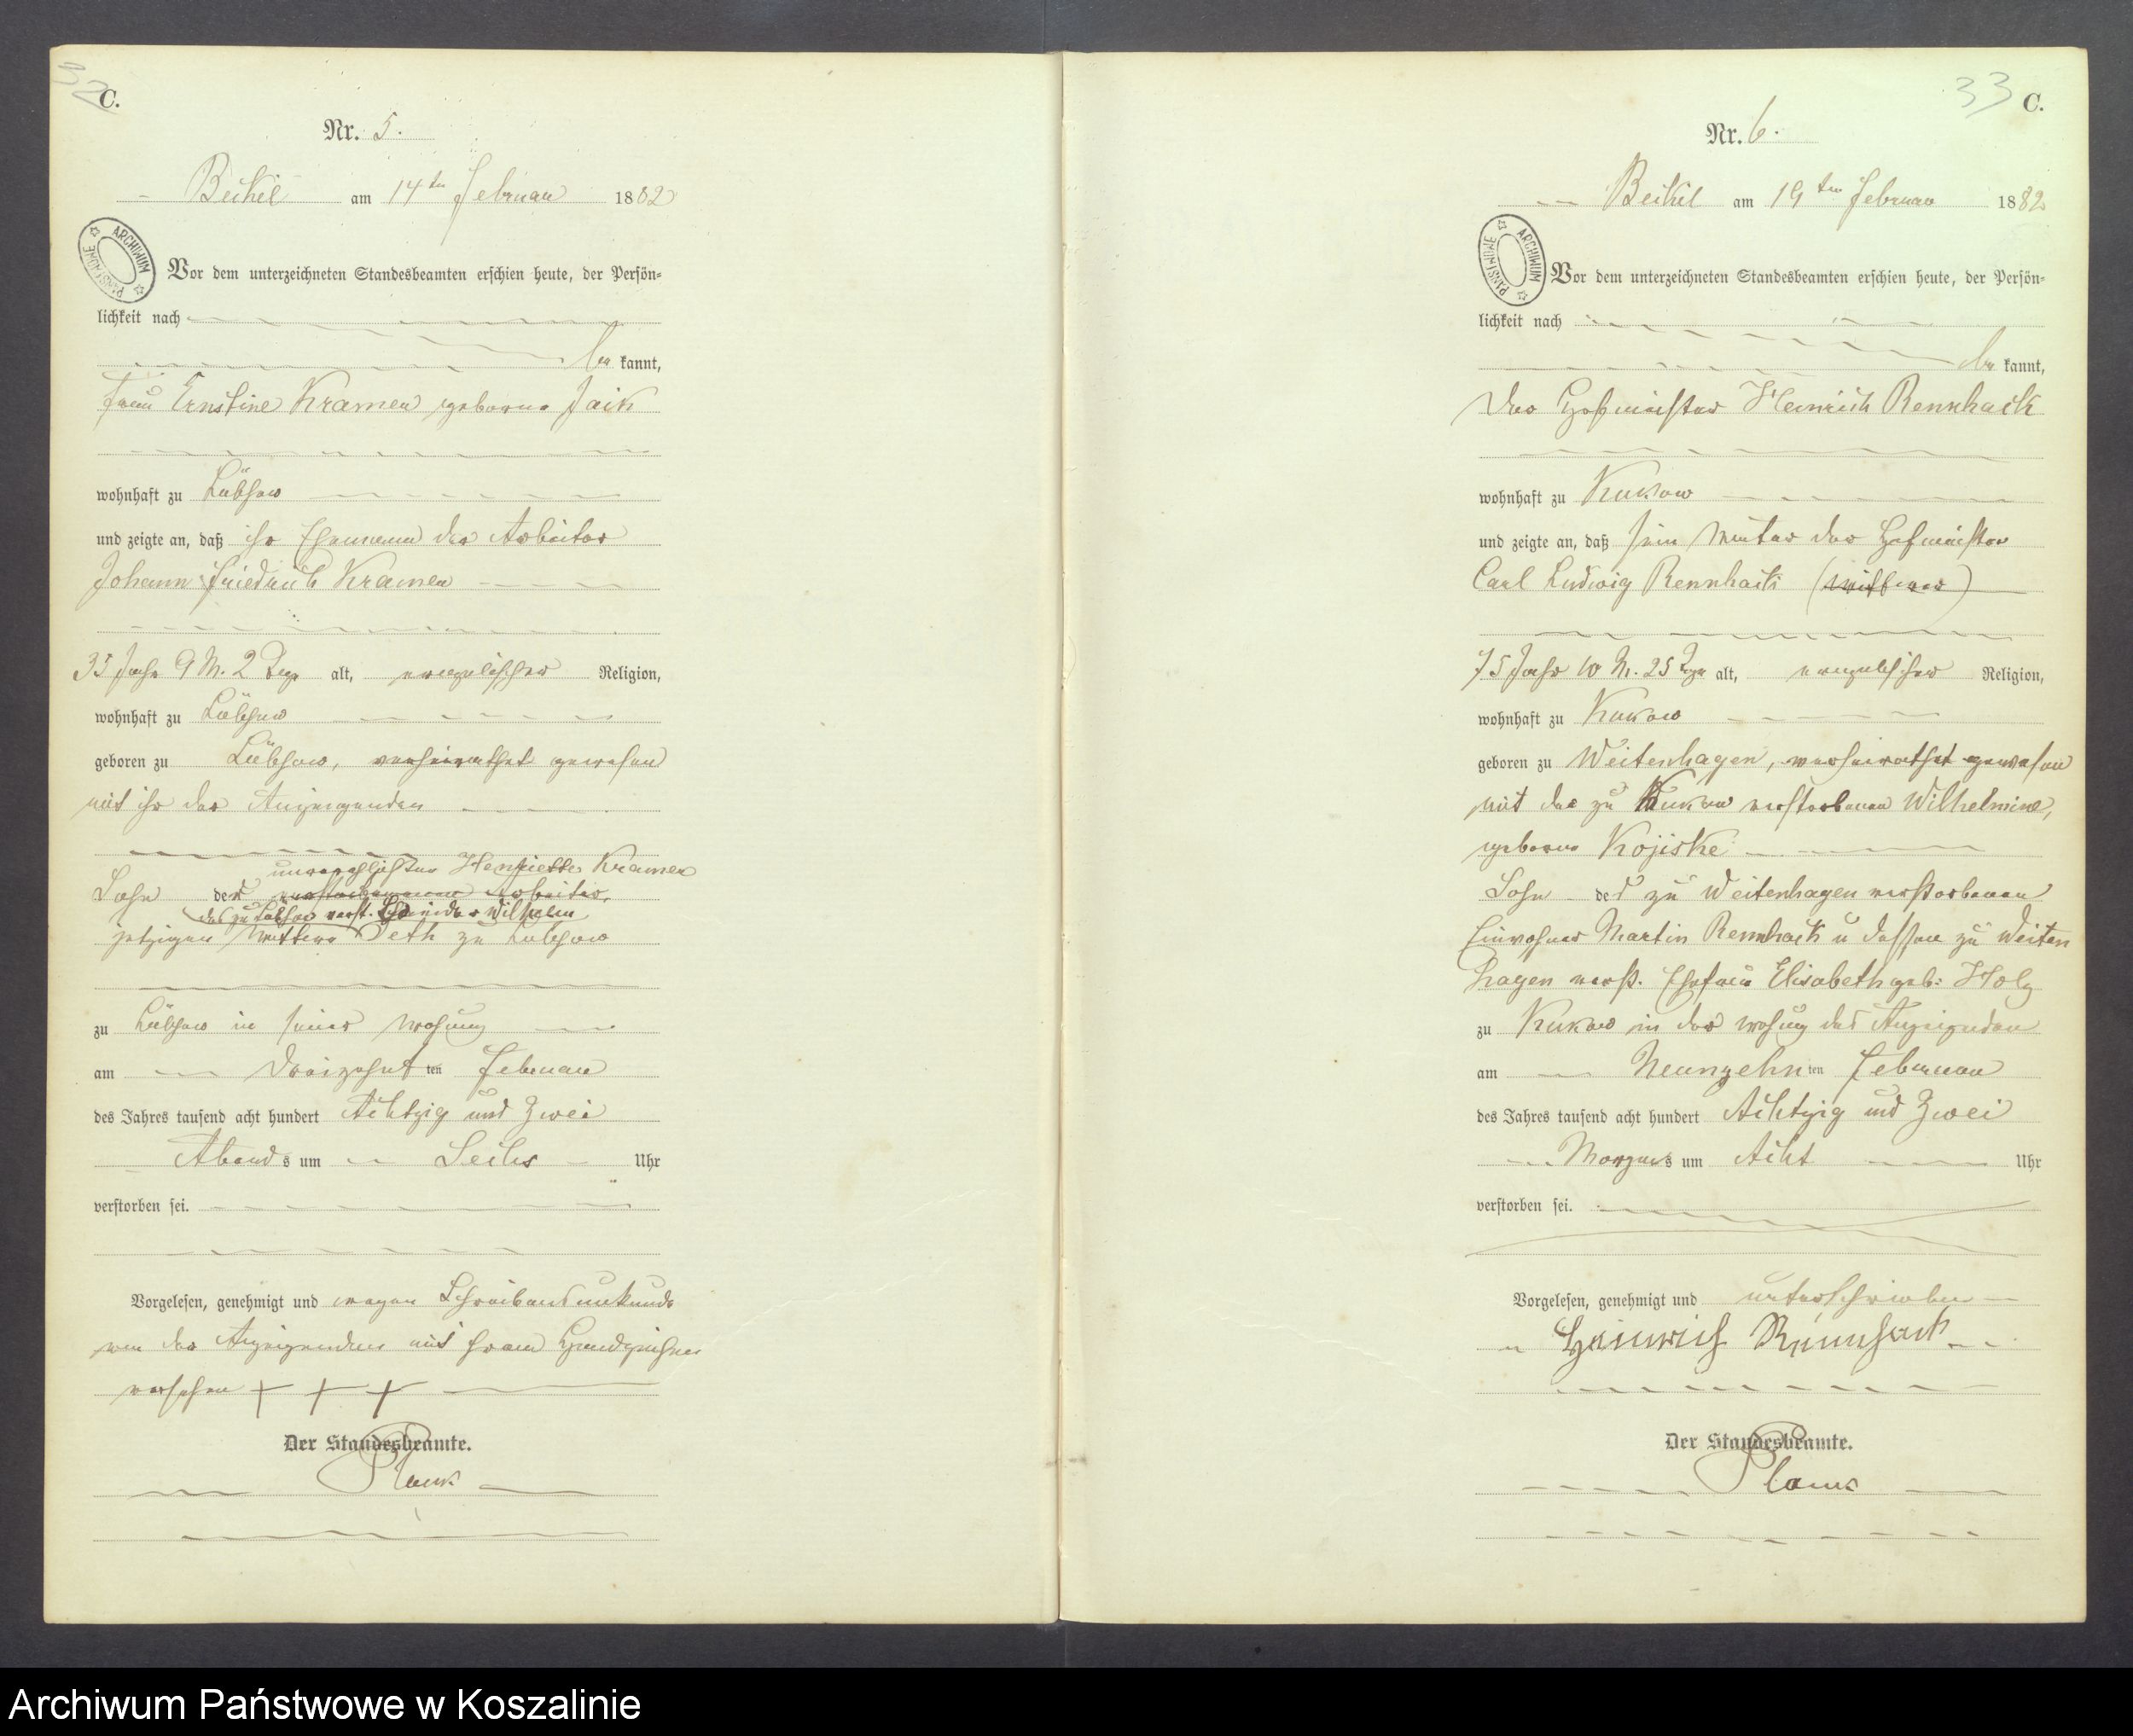 32
C.
Nr. 5.
Beckel am 14ten Februar 1882
ARCHIWUM PAŃSTWOWE
Vor dem unterzeichneten Standesbeamten erschien heute, der Persön=
lichkeit nach
be kannt,
Frau Ernstine Kramer geborene Jaik
wohnhaft zu Lübzow
und zeigte an, daß ihr Ehemann der Arbeiter
Johann Friedrich Kramer
35 Jahr 9 M. 2 Tage alt, evangelischer Religion,
wohnhaft zu Lübzow
geboren zu Lübzow, verheirathet gewesen
mit ihr der Anzeigenden
unverehelichten Henriette Kramer
Sohn der verstorbenen Arbeiter,
des zu Lübzow verst. Wilhelm
jetzigen Wittwe Peth zu Lübzow
zu Lübzow in seiner Wohnung
am Dreizehnt ten Februar
des Jahres tausend acht hundert Achtzig und Zwei
Abends um Sechs Uhr
verstorben sei.
Vorgelesen, genehmigt und wegen Schreibensunkunde
von der Anzeigenden mit ihrem Handzeichen
versehen + + +
Der Standesbeamte.
Plank
33
C.
Nr. 6.
Beckel am 19ten Februar 1882
ARCHIWUM PAŃSTWOWE
Vor dem unterzeichneten Standesbeamten erschien heute, der Persön=
lichkeit nach
be kannt,
Der Hofmeister Heinrich Rennhack
wohnhaft zu Kukow
und zeigte an, daß sein Vater der Hofmeister
Carl Ludwig Rennhack (Wittwer)
75 Jahr 10 M. 25 Tage alt, evangelischer Religion,
wohnhaft zu Kukow
geboren zu Weitenhagen, verheirathet gewesen
mit der zu Kukow verstorbenen Wilhelmine,
geborene Kojiske
Sohn des zu Weitenhagen verstorbenen
Einwohner Martin Rennhack u dessen zu Weiten
hagen verst. Ehefrau Elisabeth geb: Holz
zu Kukow in der Wohnung des Anzeigenden
am Neunzehn ten Februar
des Jahres tausend acht hundert Achtzig und Zwei
Morgens um Acht Uhr
verstorben sei.
Vorgelesen, genehmigt und unterschrieben
Heinrich Rennhack
Der Standesbeamte.
Plank
Archiwum Państwowe w Koszalinie